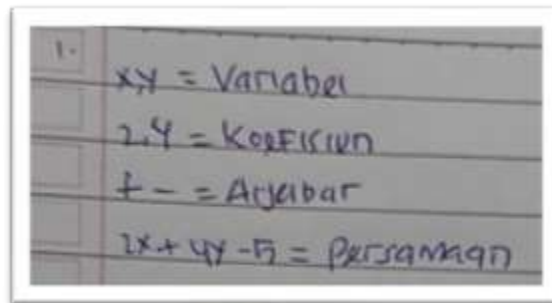 1.
x,y = Variabel
2,4 = Koefisien
+ - = Aljabar
2x + 4y - 5 = Persamaan